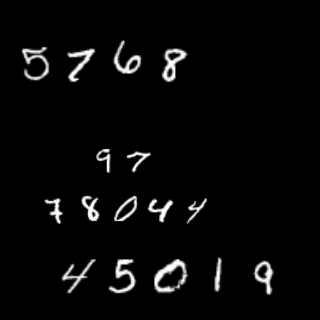 5768
97
78044
45019